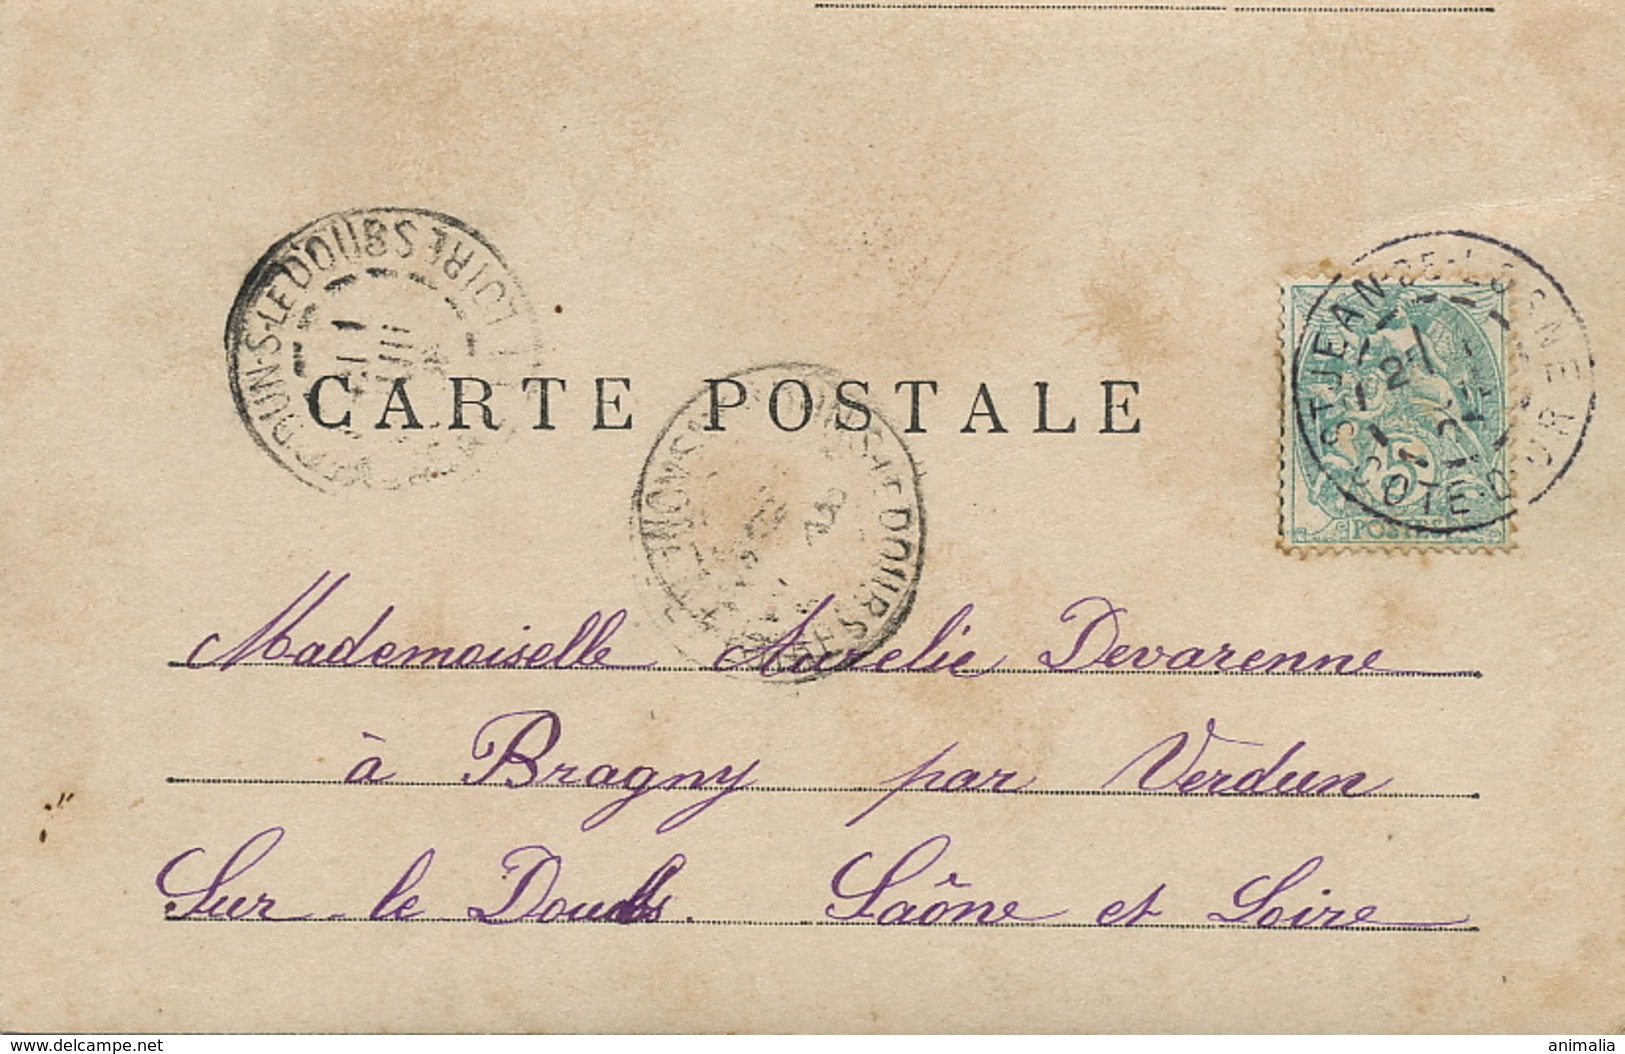 CARTE POSTALE
ST JEAN-DE-LOSNE
COTE D'OR
5
POSTES
S-LE DOUBS
Mademoiselle Aurelie Devarenne
à Bragny par Verdun
Sur-le Doubs. Saône et Loire
www.delcampe.net
animalia